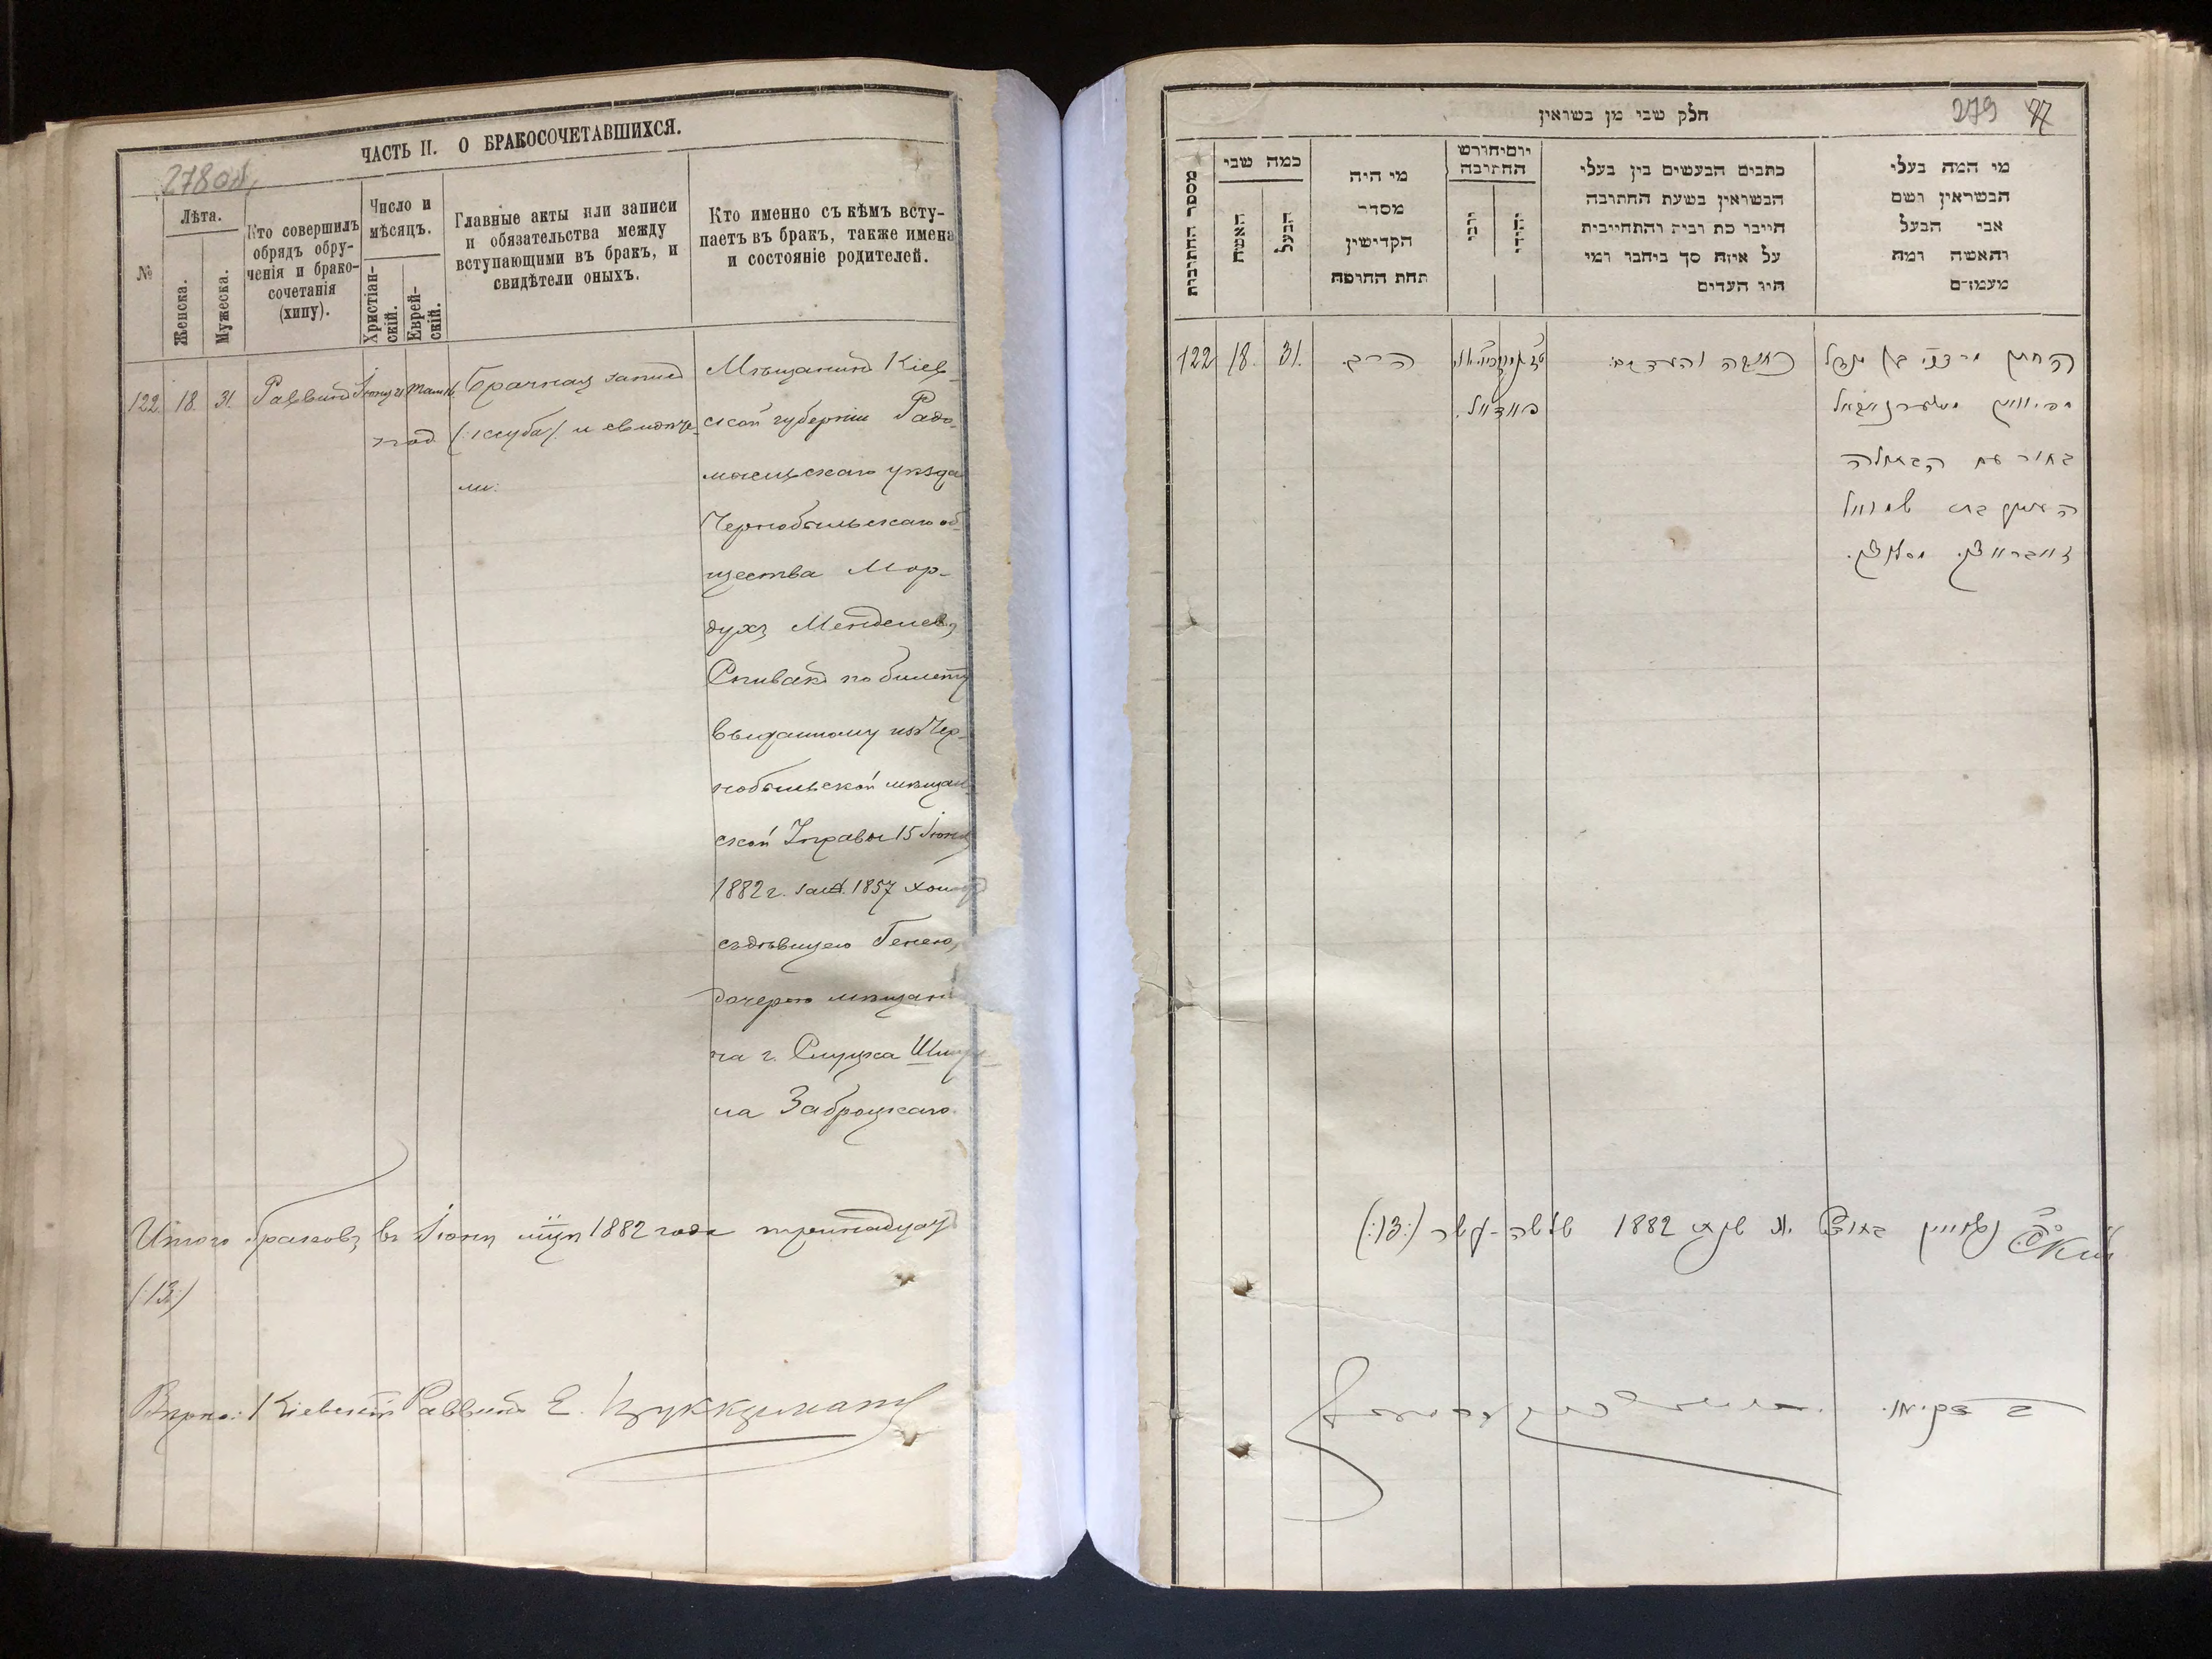 ЧАСТЬ II. О БРАКОСОЧЕТАВШИХСЯ.
278об.
№
Лѣта.
Женска.
Мужеска.
Кто совершилъ
обрядъ обру-
ченія и брако-
сочетанія
(хипу).
Число и
мѣсяцъ.
Христіан-
скій.
Еврей-
скій.
Главные акты или записи
и обязательства между
вступающими въ бракъ, и
свидѣтели оныхъ.
Кто именно съ кѣмъ всту-
паетъ въ бракъ, также имена
и состояніе родителей.
122
18.
31.
Раввинъ
Брачная запись
(:ксуба:) и свидѣте-
ли:
Мѣщанинъ Кіев-
ской губерніи Радо-
мысльскаго уѣзда
Чернобыльскаго об-
щества Мор-
духъ Менделевъ
Спивакъ по билету
выданному изъ Чер-
нобыльской мѣщан-
ской Управы 15 Іюня
1882 г. за № 1857 холост.
съ дѣвицею Генею,
дочерью мѣщани-
на г. Слуцка Шмуй-
ла Заброцкаго.
Итого браковъ въ Іюнѣ мцѣ 1882 года тринадцать
(:13:)
Вѣрно: Кіевскій Раввинъ Е. Цуккерманъ
חלק שני מן נשואין
279
77
מספר החתונות
כמה שני
האשה
הבעל
מי היה
מסדר
הקדישין
תחת החופה
יום וחודש
החתונה
יהודי
כתבים הנעשים בין בעלי
הנשואין בשעת החתונה
חייבו כת וביח והתחייבות
על איזה סך ביחבר ומי
היו העדים
מי המה בעלי
הנשואין ושם
אבי הבעל
והאשה ומה
מעמדם
122
18.
31.
הרב.
כתובה והעדים:
החתן מרדכי בן מענדל
ספיוואק מטשערנאביל
בחור עם הבתולה
העניע בת שמואל
זאבראצקי. מסלוצק.
1882
(:13:)